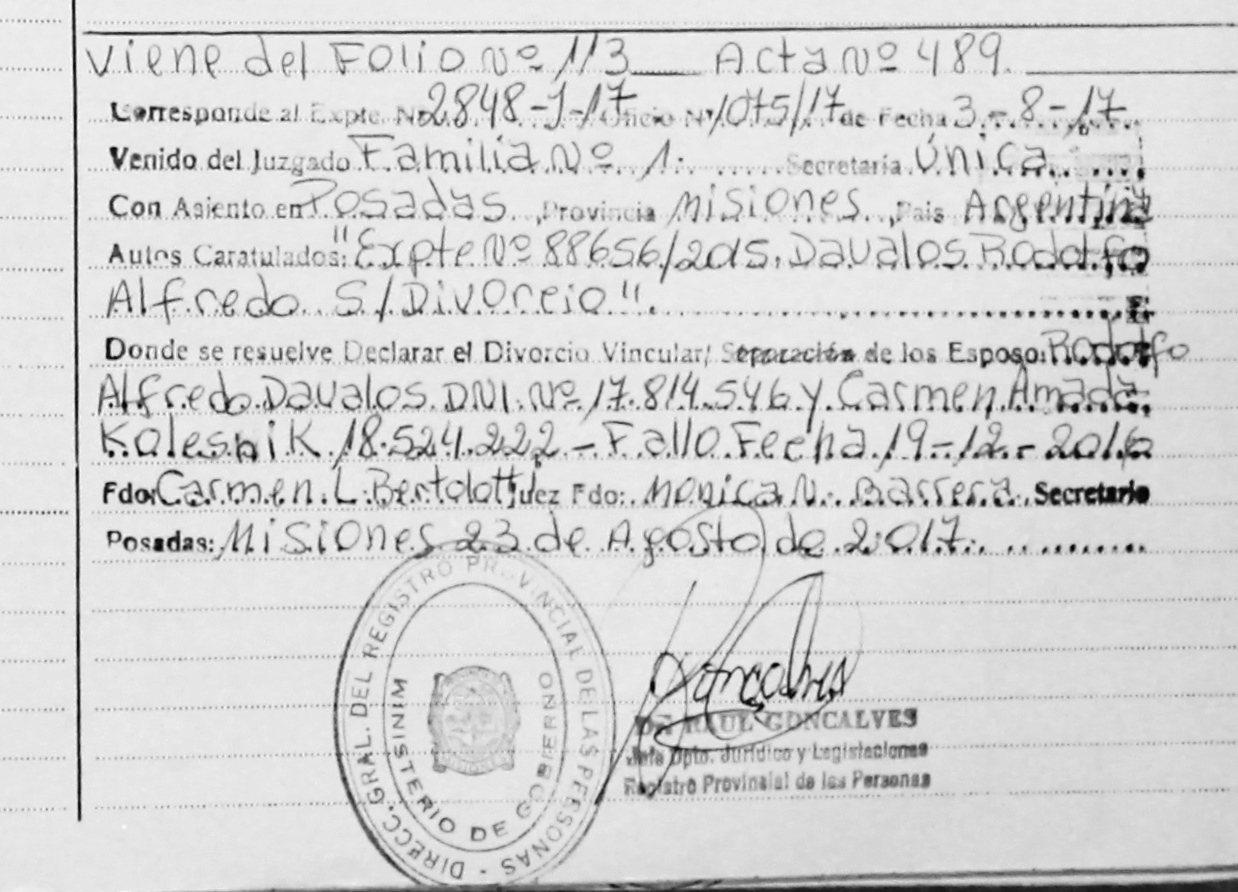 Viene del Folio Nº 113 Acta Nº 489.
Corresponde al Expte. Nº 2848-J-17 Oficio Nº 1075/17 de Fecha 3-8-17
Venido del Juzgado Familia Nº 1. Secretaria Única
Con Asiento en Posadas, Provincia Misiones, Pais Argentina
Autos Caratulados: "Expte Nº 88656/2015. Davalos Rodolfo
Alfredo S/Divorcio".
Donde se resuelve Declarar el Divorcio Vincular/ Separación de los Esposo: Rodolfo
Alfredo Davalos DNI. Nº 17.814.546 y Carmen Amada
Kolesnik 18.524.222 - Fallo Fecha 19-12-2016
Fdo: Carmen. L. Bertolotti Juez Fdo: Monica N. Barrera. Secretario
Posadas: Misiones 23 de Agosto de 2.017.
DIRECC. GRAL. DEL REGISTRO PROVINCIAL DE LAS PERSONAS -
MINISTERIO DE GOBIERNO
Goncalves
DR RAUL GONCALVES
Jefe Dpto. Jurídico y Legislaciones
Registro Provincial de las Personas